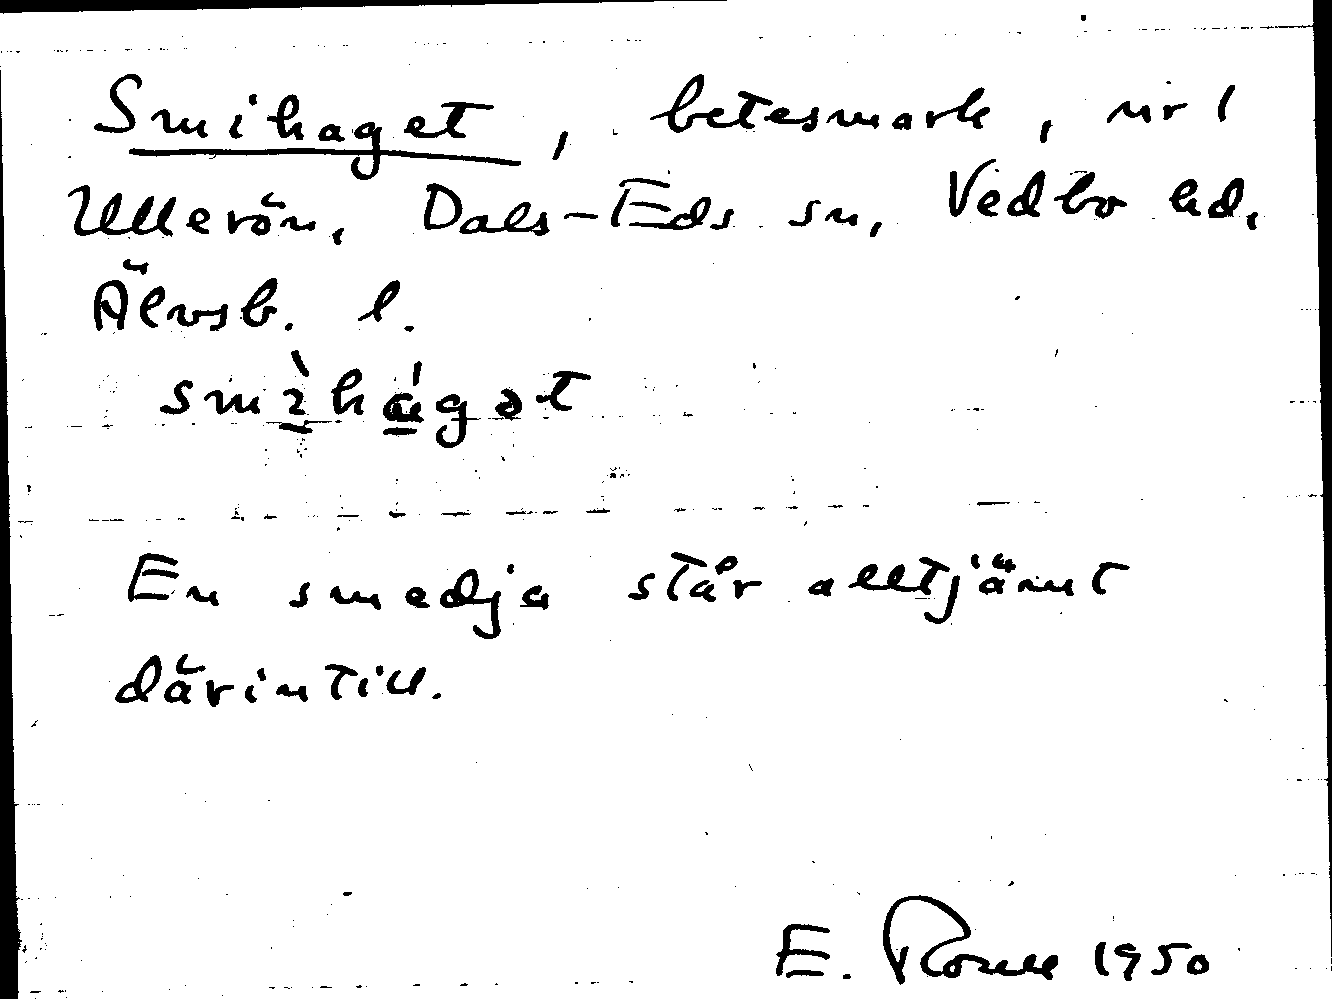 Smihaget, betesmark, nr 1
Ullerön, Dals-Eds sn, Vedbo hd,
Älvsb. l.
smìhágət
En smedja står alltjämt
därintill.
E. 1950